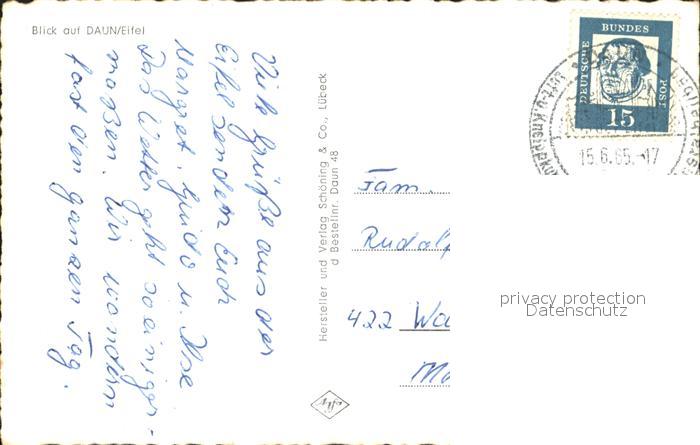 Blick auf DAUN/Eifel
Viele Grüße aus der
Eifel senden Euch
Margret, Guido u. Ilse.
Das Wetter geht so einiger-
maßen. Wir wandern
fast den ganzen Tag.
Hersteller und Verlag Schöning & Co., Lübeck
d Bestellnr. Daun 48
DEUTSCHE
BUNDES
POST
15
15.6.65.-17
Fam.
Rudolp
422 Wa
privacy protection
Datenschutz